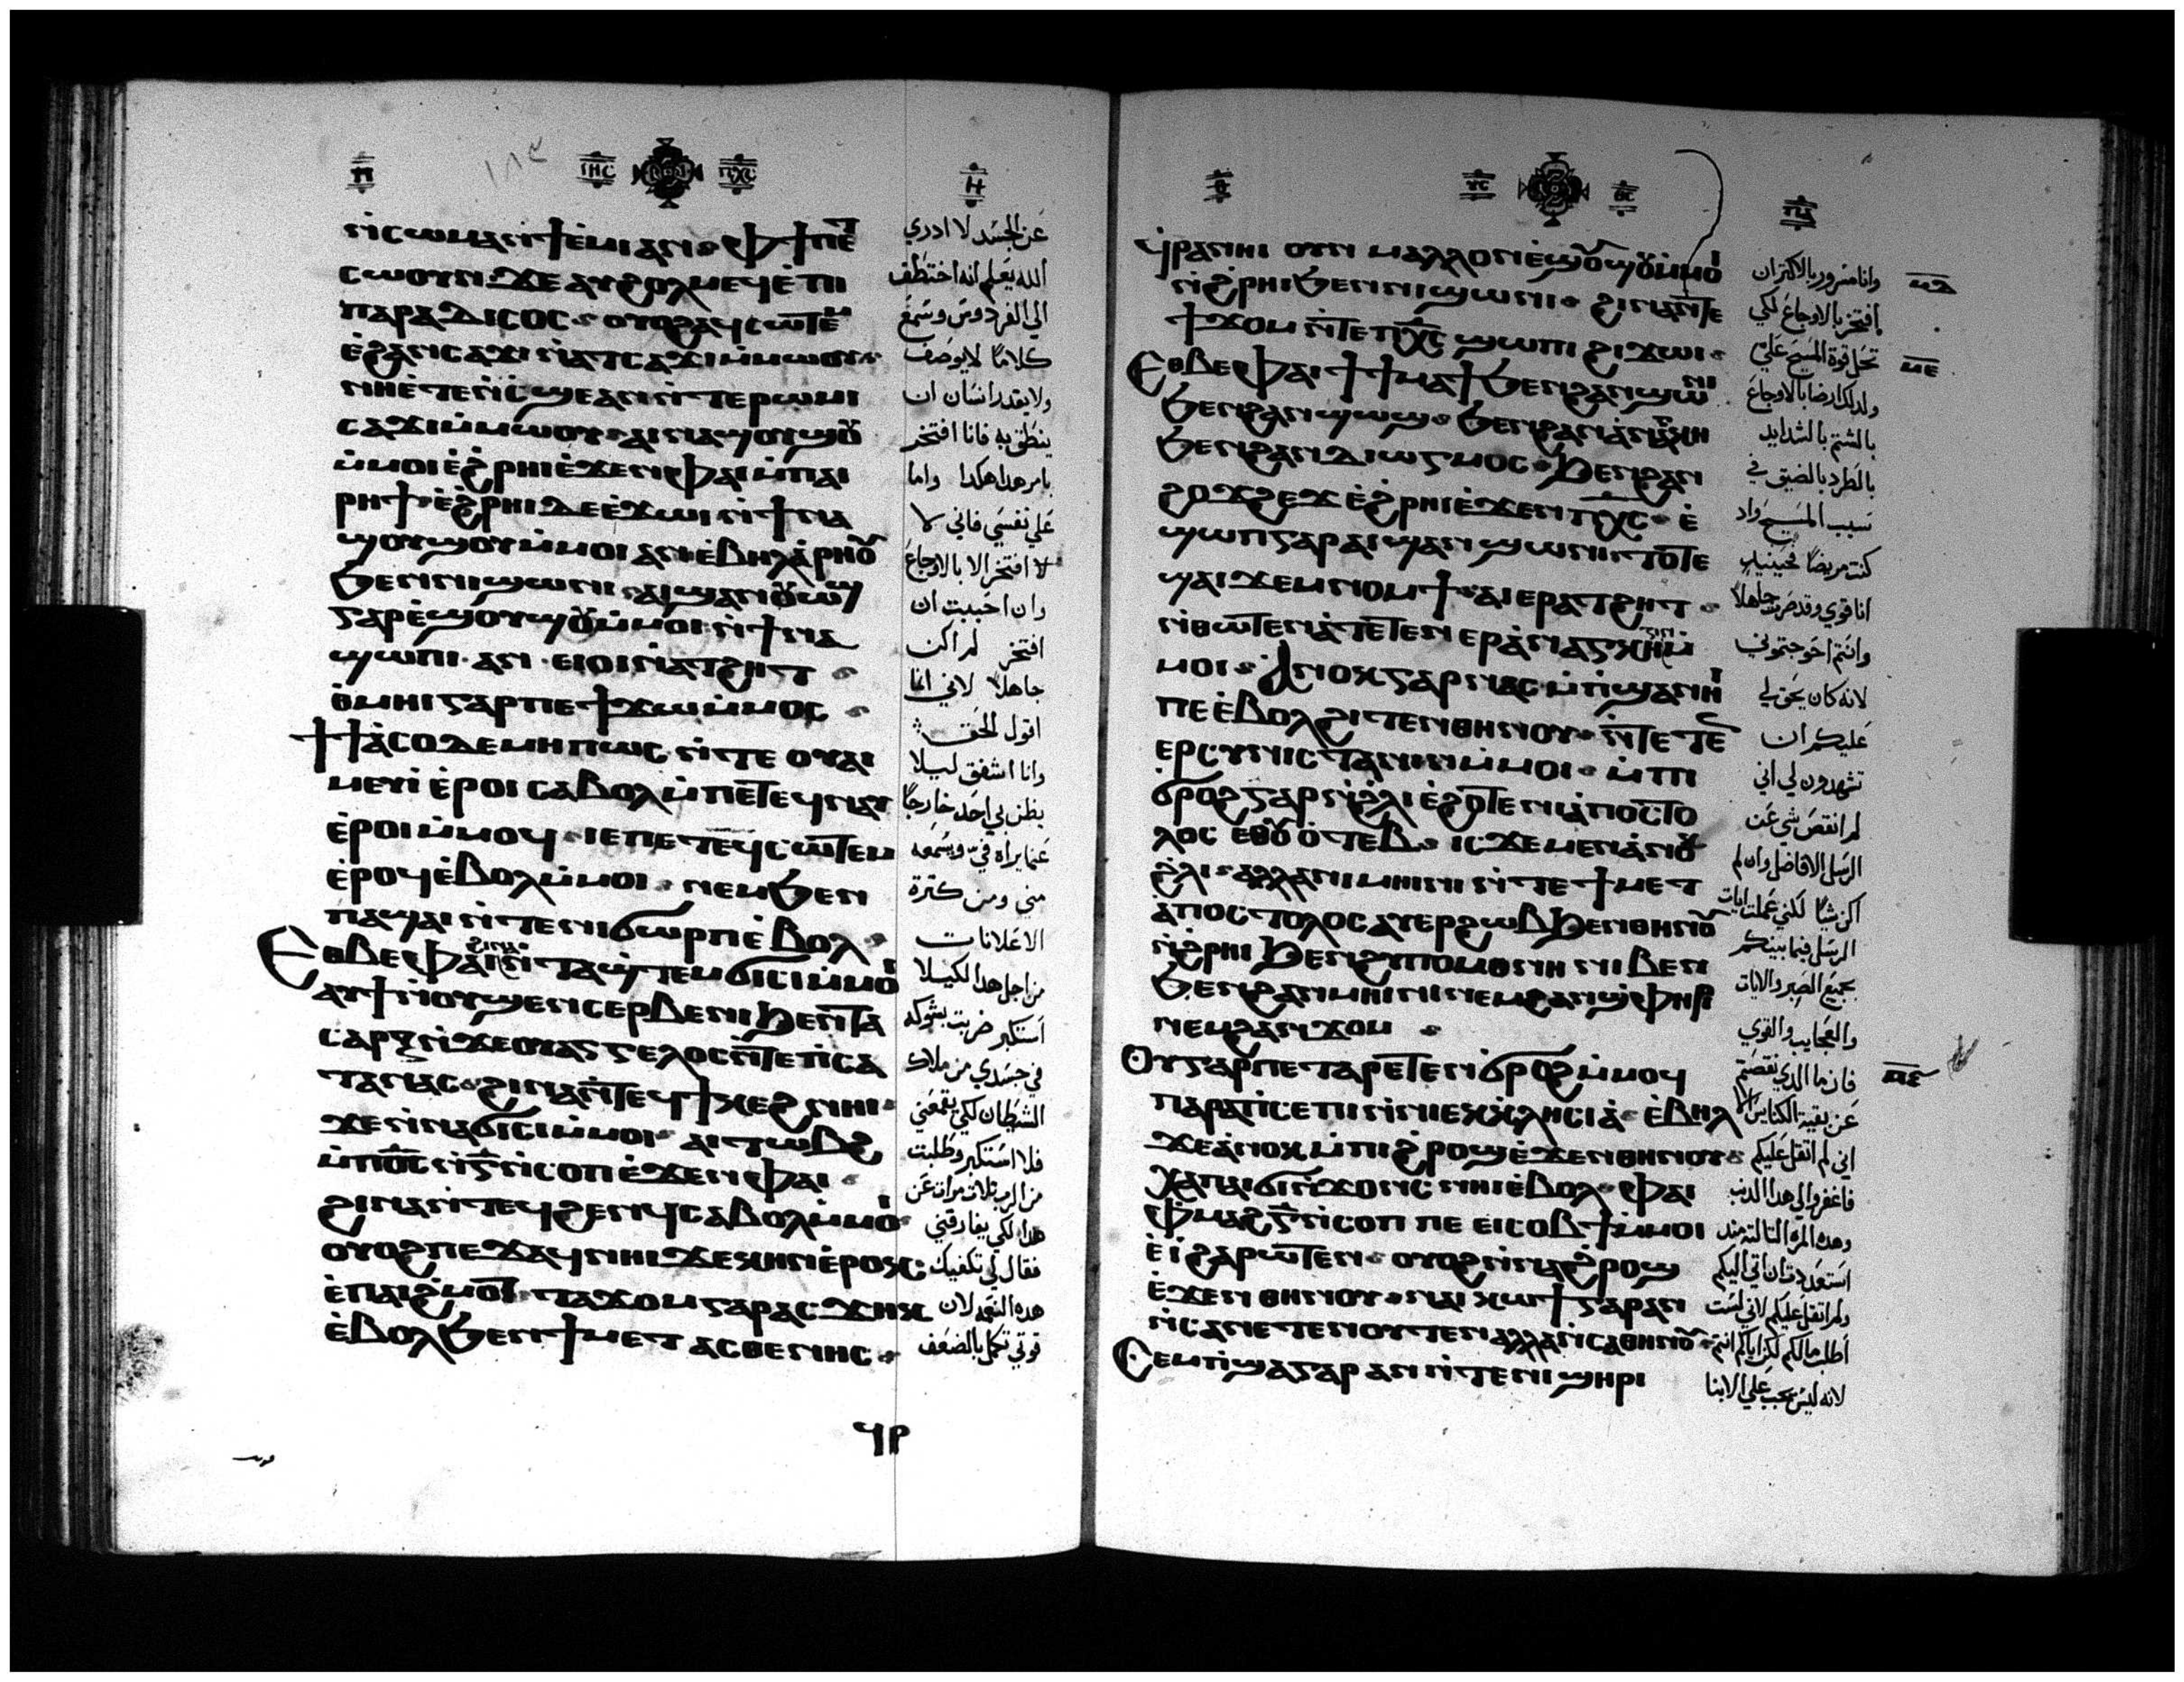 ⲡ ⲓⲏⲥ ⲡⲭⲥ ⲏ
ⲛ̀ⲥⲱⲙⲁ ⲛ̀ϯⲉ̀ⲙⲓ ⲁⲛ ⲫϯ ⲡⲉⲧ
ⲥⲱⲟⲩⲛ ϫⲉ ⲁⲩϩⲟⲗⲙⲉϥ ⲉ̀ⲡⲓ
ⲡⲁⲣⲁⲇⲓⲥⲟⲥ ⲟⲩⲟϩ ⲁϥⲥⲱⲧⲉⲙ
ⲉ̀ϩⲁⲛⲥⲁϫⲓ ⲛ̀ⲁⲧⲥⲁϫⲓ ⲙ̀ⲙⲱⲟⲩ
ⲛⲏⲉ̀ⲧⲉⲛ̀ⲥϣⲉ ⲁⲛ ⲛ̀ⲧⲉ ⲣⲱⲙⲓ
ⲥⲁϫⲓ ⲙ̀ⲙⲱⲟⲩ ⲁⲓⲛⲁϣⲟⲩϣⲟⲩ
ⲙ̀ⲙⲟⲓ ⲉ̀ϩ̀ⲣⲏⲓ ⲉ̀ϫⲉⲛ ⲫⲁⲓ ⲙ̀ⲡⲁⲓ
ⲣⲏϯ ⲉ̀ϩ̀ⲣⲏⲓ ⲇⲉ ⲉ̀ϫⲱⲓ ⲛ̀ϯⲛⲁ
ϣⲟⲩϣⲟⲩ ⲙ̀ⲙⲟⲓ ⲁⲛ ⲉ̀ⲃⲏⲗ ⲁ̀ⲣⲏⲟⲩ
ϧⲉⲛ ⲛⲓϣⲱⲛⲓ ⲁⲓϣⲁⲛⲟⲩⲱϣ
ⲅⲁⲣ ⲉ̀ϣⲟⲩϣⲟⲩ ⲙ̀ⲙⲟⲓ ⲛ̀ϯⲛⲁ
ϣⲱⲡⲓ ⲁⲛ ⲉⲓⲟⲓ ⲛ̀ⲁⲧϩⲏⲧ
ⲑ̀ⲙⲏⲓ ⲅⲁⲣ ⲡⲉ ϯϫⲱ ⲙ̀ⲙⲟⲥ
ϯⲁ̀ⲥⲟ ⲇⲉ ⲙⲏⲡⲱⲥ ⲛ̀ⲧⲉ ⲟⲩⲁⲓ
ⲙⲉⲩⲓ̀ ⲉ̀ⲣⲟⲓ ⲥⲁⲃⲟⲗ ⲙ̀ⲡⲉⲧⲉϥⲛⲁⲩ
ⲉ̀ⲣⲟⲓ ⲙ̀ⲙⲟϥ ⲓⲉ ⲡⲉⲧⲉϥⲥⲱⲧⲉⲙ
ⲉ̀ⲣⲟϥ ⲉ̀ⲃⲟⲗ ⲙ̀ⲙⲟⲓ ⲛⲉⲙ ϧⲉⲛ
ⲡⲁϣⲁⲓ ⲛ̀ⲧⲉ ⲛⲓϭⲱⲣⲡ ⲉ̀ⲃⲟⲗ
Ⲉⲑⲃⲉ ⲫⲁⲓ ϩⲓⲛⲁ ⲛ̀ⲧⲁϣ̀ⲧⲉⲙϭⲓⲥⲓ ⲙ̀ⲙⲟⲓ
ⲁⲩϯ ⲛ̀ⲟⲩϣⲉⲛⲥⲉⲣⲃⲉⲛⲓ ϧⲉⲛ ⲧⲁ
ⲥⲁⲣⲝ ⲛ̀ϫⲉ ⲟⲩⲁⲅⲅⲉⲗⲟⲥ ⲛ̀ⲧⲉ ⲡ̀ⲥⲁ
ⲧⲁⲛⲁⲥ ϩⲓⲛⲁ ⲛ̀ⲧⲉϥϯⲕⲉϩ ⲛⲏⲓ
ϫⲉ ⲛ̀ⲛⲁϭⲓⲥⲓ ⲙ̀ⲙⲟⲓ ⲁⲓⲧⲱⲃϩ
ⲙ̀ⲡⲟ̅ⲥ̅ ⲛ̀ⲅ̅ ⲛ̀ⲥⲟⲡ ⲉ̀ϫⲉⲛ ⲫⲁⲓ
ϩⲓⲛⲁ ⲛ̀ⲧⲉϥϩⲉⲛϥ ⲥⲁⲃⲟⲗ ⲙ̀ⲙⲟⲓ
ⲟⲩⲟϩ ⲡⲉϫⲁϥ ⲛⲏⲓ ϫⲉ ⲕⲏⲛ ⲉ̀ⲣⲟⲕ
ⲉ̀ⲡⲁⲓϩ̀ⲙⲟⲧ ⲧⲁϫⲟⲙ ⲅⲁⲣ ⲁⲥϫⲏⲕ
ⲉ̀ⲃⲟⲗ ϧⲉⲛ ϯⲙⲉⲧⲁⲥⲑⲉⲛⲏⲥ
عن الجسد لا ادري
الله يعلم انه اختطف
الي الفردوس وسمع
كلامًا لا يوصف
ولا يقدر انسان ان
ينطق به فانا افتخر
بامر هدا هكدا واما
علي نفسي فاني لا
لا افتخر الا بالاوجاع
وان احببت ان
افتخر لم اكن
جاهلا لاني انما
اقول الحق
وانا اشفق ليلا
يظن بي احد خارجًا
عما يراه في وسمعه
مني ومن كثرة
الاعلانات
من اجل هدا لكيلا
استكبر ضربت بشوكه
في جسدي من ملاك
الشيطان لكي يقمعني
فلا استكبر وطلبت
من الرب تلات مرات عن
هدا لكي يفارقني
فقال لي تكفيك
هده النعمه لان
قوتي تكمل بالضعف
ϥⲣ
ⲑ ⲩⲥ ⲑⲥ
ϥ̀ⲣⲁⲛⲏⲓ ⲟⲩⲛ ⲙⲁⲗⲗⲟⲛ ⲉ̀ϣⲟⲩϣⲟⲩ ⲙ̀ⲙⲟⲓ
ⲛ̀ϩ̀ⲣⲏⲓ ϧⲉⲛ ⲛⲓϣⲱⲛⲓ ϩⲓⲛⲁ ⲛ̀ⲧⲉ
ϯϫⲟⲙ ⲛ̀ⲧⲉ ⲡⲭ̅ⲥ̅ ϣⲱⲡⲓ ϩⲓϫⲱⲓ
Ⲉⲑⲃⲉ ⲫⲁⲓ ϯϯⲙⲁϯ ϧⲉⲛ ϩⲁⲛϣⲱⲛⲓ
ϧⲉⲛ ϩⲁⲛϣⲱϣ ϧⲉⲛ ϩⲁⲛⲁ̀ⲛⲁⲅⲕⲏ
ϧⲉⲛ ϩⲁⲛⲇⲓⲱⲅⲙⲟⲥ ϧⲉⲛ ϩⲁⲛ
ϩⲟϫϩⲉϫ ⲉ̀ϩ̀ⲣⲏⲓ ⲉ̀ϫⲉⲛ ⲡⲭ̅ⲥ̅ ⲉ̀
ϣⲱⲡ ⲅⲁⲣ ⲁⲓϣⲁⲛϣⲱⲛⲓ ⲧⲟⲧⲉ
ϣⲁⲓϫⲉⲙⲛⲟⲙϯ ⲁⲓⲉⲣⲁⲧϩⲏⲧ
ⲛ̀ⲑⲱⲧⲉⲛ ⲁ̀ⲧⲉⲧⲉⲛⲉⲣⲁ̀ⲛⲁⲅⲕⲁⲍⲓⲛ ⲙ̀
ⲙⲟⲓ Ⲁⲛⲟⲕ ⲅⲁⲣ ⲛⲁⲥⲙ̀ⲡ̀ϣⲁ ⲛⲏⲓ
ⲡⲉ ⲉ̀ⲃⲟⲗ ϩⲓⲧⲉⲛ ⲑⲏⲛⲟⲩ ⲛ̀ⲧⲉⲧⲉⲛ
ⲉⲣⲥⲩⲛⲓⲥⲧⲁⲛⲓⲛ ⲙ̀ⲙⲟⲓ ⲙ̀ⲡⲓ
ϭⲣⲟϩ ⲅⲁⲣ ⲛ̀ϩ̀ⲗⲓ ⲉ̀ϩⲟⲧⲉ ⲛⲓⲁ̀ⲡⲟⲥⲧⲟ
ⲗⲟⲥ ⲉⲑⲟⲩⲟ̀ⲧⲉⲃ ⲓⲥϫⲉ ⲙⲉⲛ ⲁ̀ⲛⲟⲕ
ϩ̀ⲗⲓ ⲁⲗⲗⲁ ⲛⲓⲙⲏⲓⲛⲓ ⲛ̀ⲧⲉ ϯⲙⲉⲧ
ⲁ̀ⲡⲟⲥⲧⲟⲗⲟⲥ ⲁⲩⲉⲣϩⲱⲃ ϧⲉⲛ ⲑⲏⲛⲟⲩ
ⲛ̀ϩ̀ⲣⲏⲓ ϧⲉⲛ ϩⲩⲡⲟⲙⲟⲛⲏ ⲛⲓⲃⲉⲛ
ϧⲉⲛ ϩⲁⲛⲙⲏⲓⲛⲓ ⲛⲉⲙ ϩⲁⲛϣ̀ⲫⲏⲣⲓ
ⲛⲉⲙ ϩⲁⲛϫⲟⲙ
Ⲟⲩ ⲅⲁⲣ ⲡⲉⲧⲁⲣⲉⲧⲉⲛϭⲣⲟϩ ⲙ̀ⲙⲟϥ
ⲡⲁⲣⲁ ⲡ̀ⲥⲉⲡⲓ ⲛ̀ⲛⲓⲉⲕⲕⲗⲏⲥⲓⲁ̀ ⲉ̀ⲃⲏⲗ
ϫⲉ ⲁ̀ⲛⲟⲕ ⲙ̀ⲡⲓϩ̀ⲣⲟϣ ⲉ̀ϫⲉⲛ ⲑⲏⲛⲟⲩ
ⲭⲁ ⲡⲁⲓϭⲓⲛ̀ϫⲟⲛⲥ ⲛⲏⲓ ⲉ̀ⲃⲟⲗ ⲫⲁⲓ
ⲫ̀ⲙⲁϩⲅ̅ ⲛ̀ⲥⲟⲡ ⲡⲉ ⲉⲓⲥⲟⲃϯ ⲙ̀ⲙⲟⲓ
ⲉ̀ⲓ̀ ϩⲁⲣⲱⲧⲉⲛ ⲟⲩⲟϩ ⲛ̀ⲛⲁϩ̀ⲣⲟϣ
ⲉ̀ϫⲉⲛ ⲑⲏⲛⲟⲩ ⲛⲁⲓⲕⲱϯ ⲅⲁⲣ ⲁⲛ
ⲛ̀ⲥⲁ ⲛⲉⲧⲉⲛⲟⲩⲧⲉⲛ ⲁⲗⲗⲁ ⲛ̀ⲥⲁ ⲑⲏⲛⲟⲩ
Ⲥⲉⲙ̀ⲡ̀ϣⲁ ⲅⲁⲣ ⲁⲛ ⲛ̀ⲧⲉ ⲛⲓϣⲏⲣⲓ
وانا مسرور بالاكتر ان
افتخر بالاوجاع لكي
تحل قوة المسيح علي
ولدلك ارضا بالاوجاع
بالشتم بالشدايد
بالطرد بالضيق في
سبب المسيح واد
كنت مريضًا فحينيد
انا قوي وقد صرت جاهلاً
وانتم احوجتموني
لانه كان يحق لي
عليكم ان
تشهدون لي اني
لم انقص شي عن
الرسل الافاضل وان لم
اكن شيًا لكني عملت ايات
الرسل فيما بينكم
بجميع الصبر والايات
والعجايب والقوي
فان ما الدي نقصتم
عن بقية الكنايس الا
اني لم اتقل عليكم
فاغفروا لي هدا الدنب
وهده المرة التالته مند
استعديت ان اتي اليكم
ولم اتقل عليكم لاني لست
اطلب مالكم لكن اياكم انتم
لانه ليس يجب علي الابنا